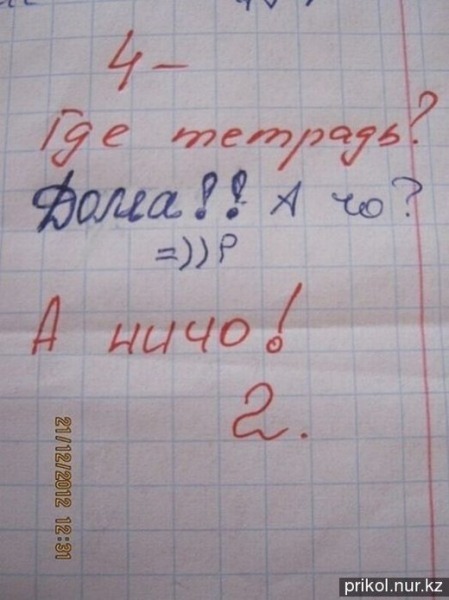 4-
Где тетрадь?
Дома!! А чо?
=))P
А ничо!
2.
21/12/2012 12:31
prikol.nur.kz